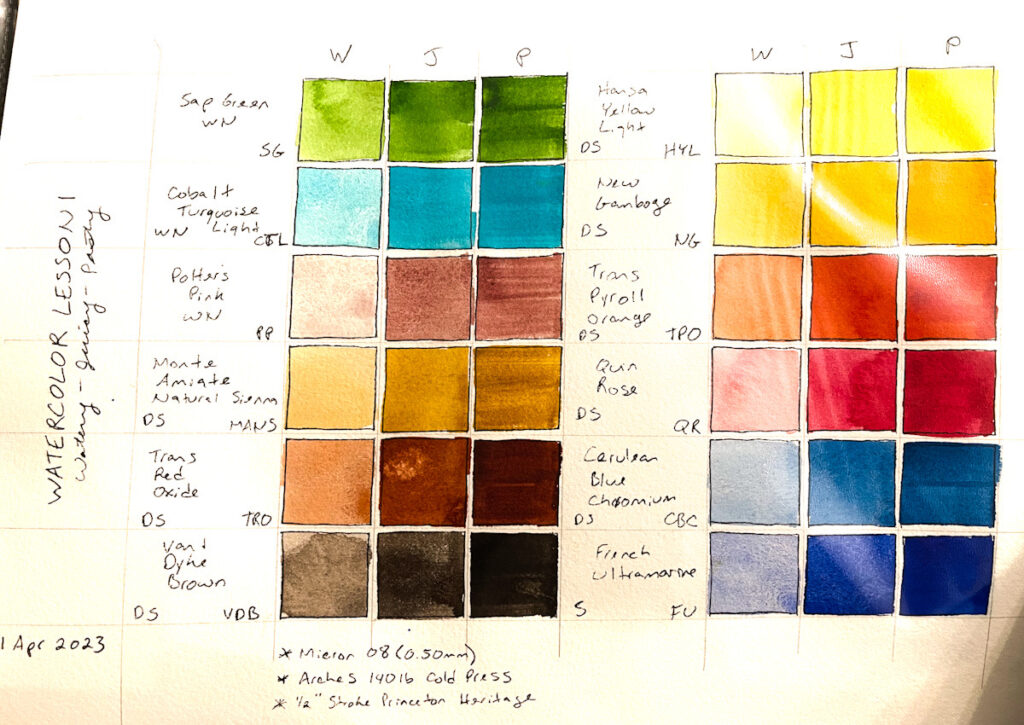 WATERCOLOR LESSON 1
Watery - Juicy - Pasty
W J P
Sap Green
WN
SG
Cobalt
Turquoise
WN Light
CTL
Potter's
Pink
WN
PP
Monte
Amiate
Natural Sienna
DS MANS
Trans
Red
Oxide
DS TRO
Vand
Dyke
Brown
DS VDB
W J P
Hansa
Yellow
Light
DS HYL
New
Gamboge
DS NG
Trans
Pyroll
Orange
DS TPO
Quin
Rose
DS QR
Cerulean
Blue
Chromium
DS CBC
French
Ultramarine
S FU
1 Apr 2023
* Micron 08 (0.50mm)
* Arches 140lb Cold Press
* 1/2" Stroke Princeton Heritage